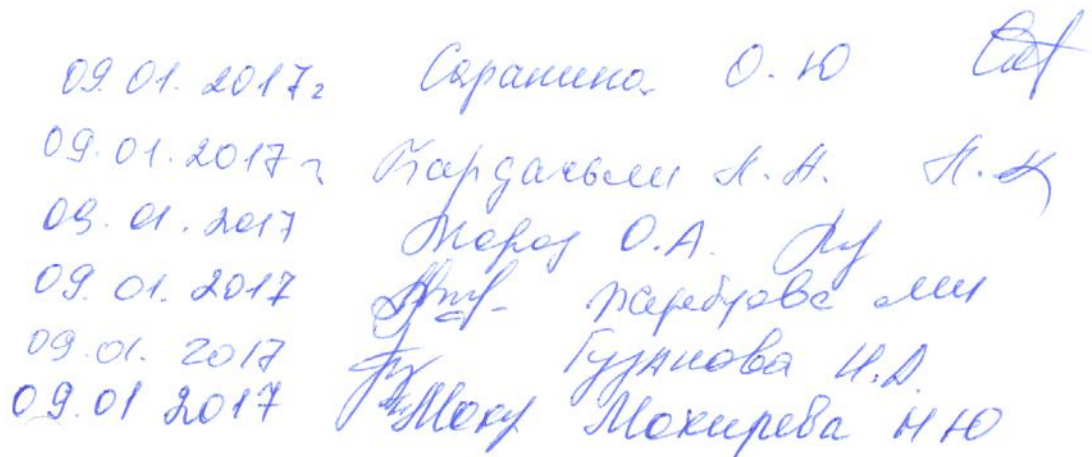 09.01.2017г Саранина О.Ю
09.01.2017г Н.Н.
09.01.2017 Мороз О.А.
09.01.2017 Жеребцова МИ
09.01.2017 Гузанова И.А.
09.01 2017 Мокирева НЮ